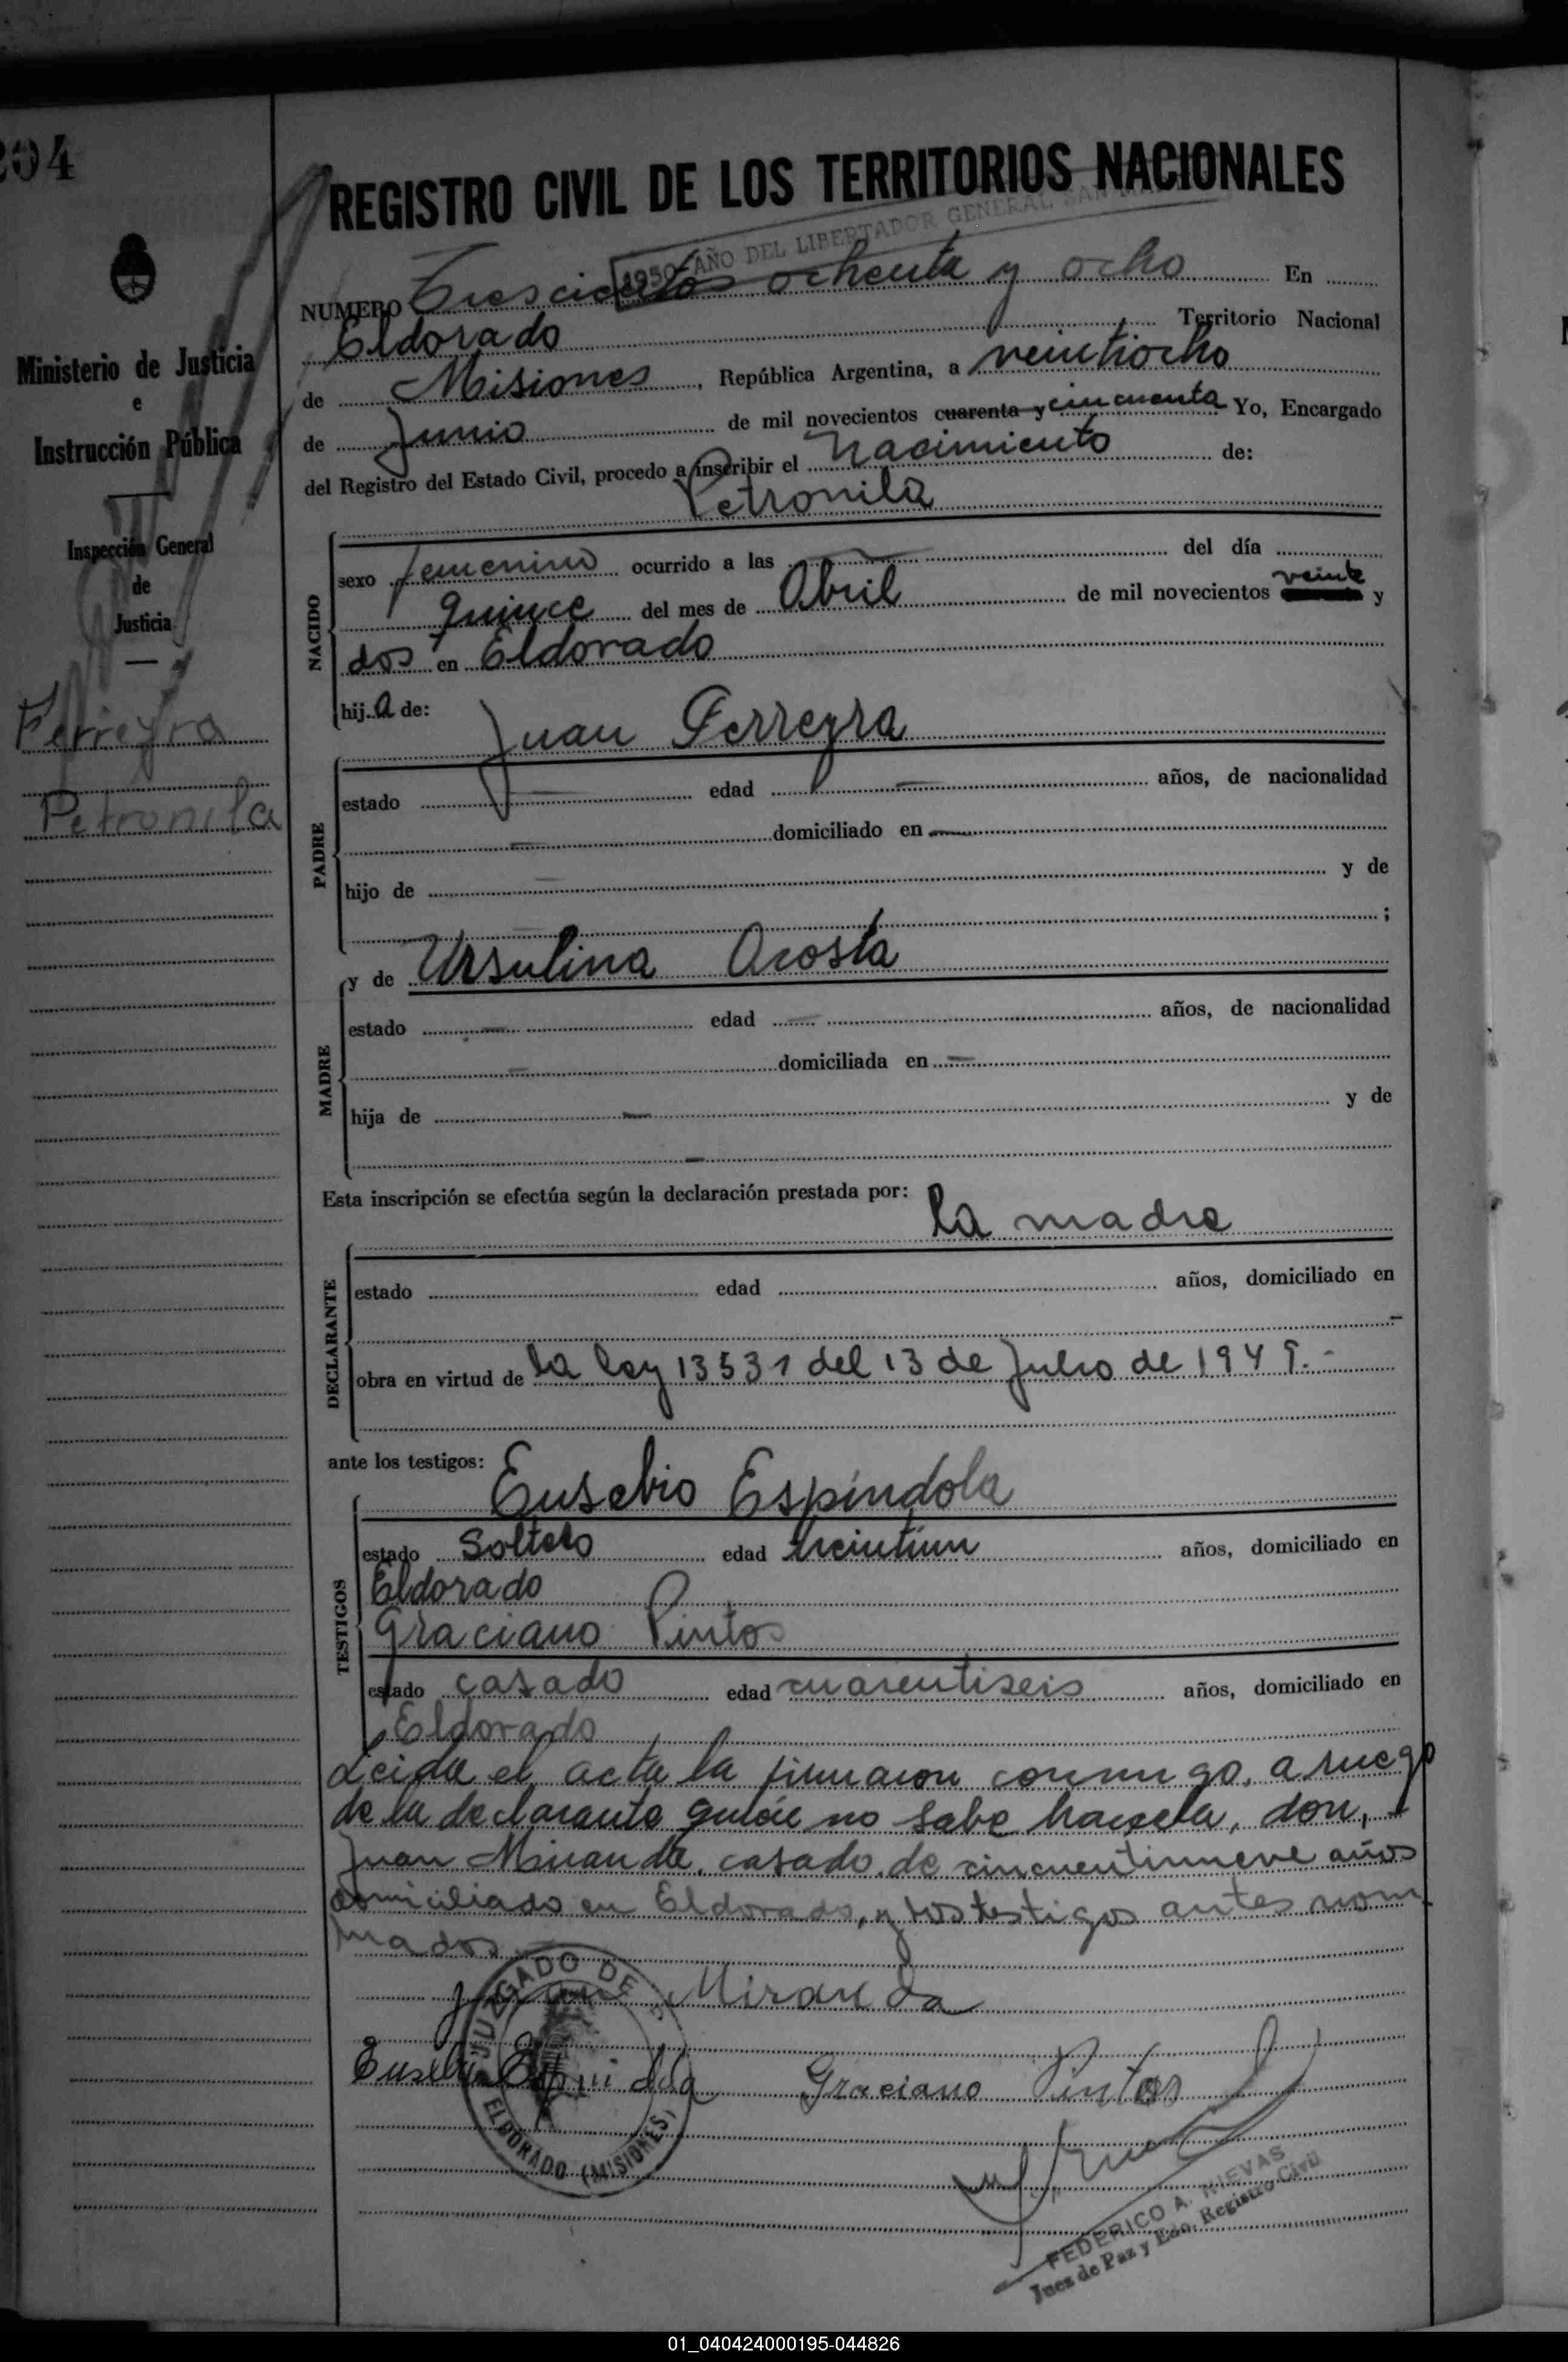 204
Ministerio de Justicia
e
Instrucción Pública
Inspección General
de
Justicia
Ferreyra
Petronila
REGISTRO CIVIL DE LOS TERRITORIOS NACIONALES
1950 - AÑO DEL LIBERTADOR GENERAL SAN
NUMERO Trescientos ochenta y ocho En
Eldorado Territorio Nacional
de Misiones, República Argentina, a veintiocho
de Junio de mil novecientos cuarenta y cincuenta Yo, Encargado
del Registro del Estado Civil, procedo a inscribir el nacimiento de:
Petronila
NACIDO
sexo femenino ocurrido a las — del día
quince del mes de Abril de mil novecientos veinte y
dos en Eldorado
hija de:
Juan Ferreyra
PADRE
estado — edad — años, de nacionalidad
— domiciliado en —
hijo de — y de
— ;
y de Ursulina Acosta
MADRE
estado — edad — años, de nacionalidad
— domiciliada en —
hija de — y de
—
Esta inscripción se efectúa según la declaración prestada por:
la madre
DECLARANTE
estado edad años, domiciliado en
obra en virtud de la ley 13531 del 13 de Julio de 1949.-
ante los testigos:
Eusebio Espíndola
TESTIGOS
estado Soltero edad treintiun años, domiciliado en
Eldorado
Graciano Pintos
estado casado edad cuarentiseis años, domiciliado en
Eldorado
Leida el acta la firmaron conmigo, a ruego
de la declarante quién no sabe hacerla, don,
Juan Miranda, casado, de cincuentinueve años
domiciliado en Eldorado, y los testigos antes nom
brados.
Juan Miranda
Eusebio Espindola Graciano Pintos
JUZGADO DE
ELDORADO (MISIONES)
FEDERICO A. NIEVAS
Juez de Paz y Edo. Registro Civil
01_040424000195-044826